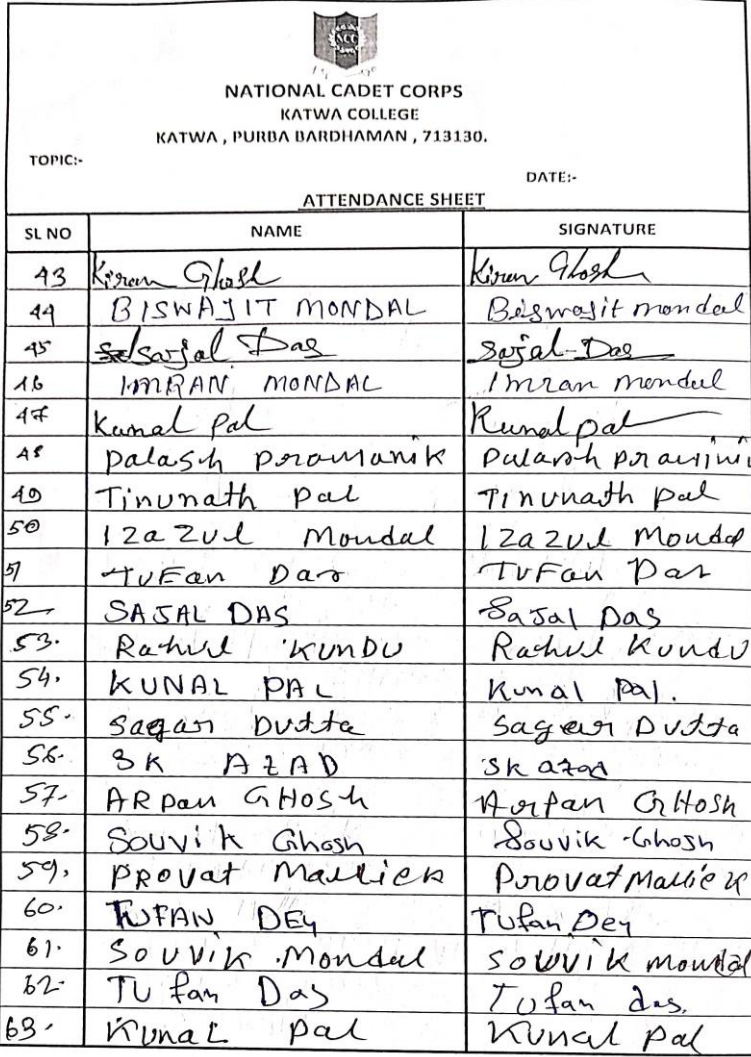 NCC
NATIONAL CADET CORPS
KATWA COLLEGE
KATWA , PURBA BARDHAMAN , 713130.
TOPIC:-
DATE:-
ATTENDANCE SHEET
SL NO NAME SIGNATURE
43 Kiran Ghosh Kiran Ghosh
44 BISWAJIT MONDAL Biswajit mondal
45 Sarjal Das Sajal Das
46 IMRAN MONDAL Imran mondal
47 Kunal Pal Kunal pal
48 palash pramanik palash
49 Tinunath pal Tinunath pal
50 Izazul Mondal Izazul Mondal
51 TuFan Das TuFan Das
52 SAJAL DAS Sajal Das
53. Rahul KUNDU Rahul Kundu
54. KUNAL PAL Kunal pal.
55. sagar Dutta sagar Dutta
56. SK AZAD SK azad
57. ARpan GHosh Arpan GHosh
58. Souvik Ghosh Souvik Ghosh
59. PROVAT Mallick Provat Mallick
60. TUFAN DEy Tufan Dey
61. Souvik Mondal souvik mondal
62. Tufan Das Tufan das.
63. KunaL pal Kunal pal